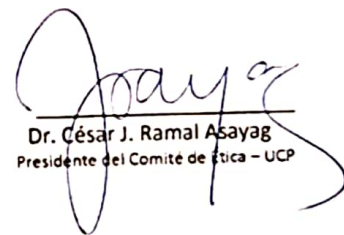 Dr. César J. Ramal Asayag
Presidente del Comité de Ética – UCP